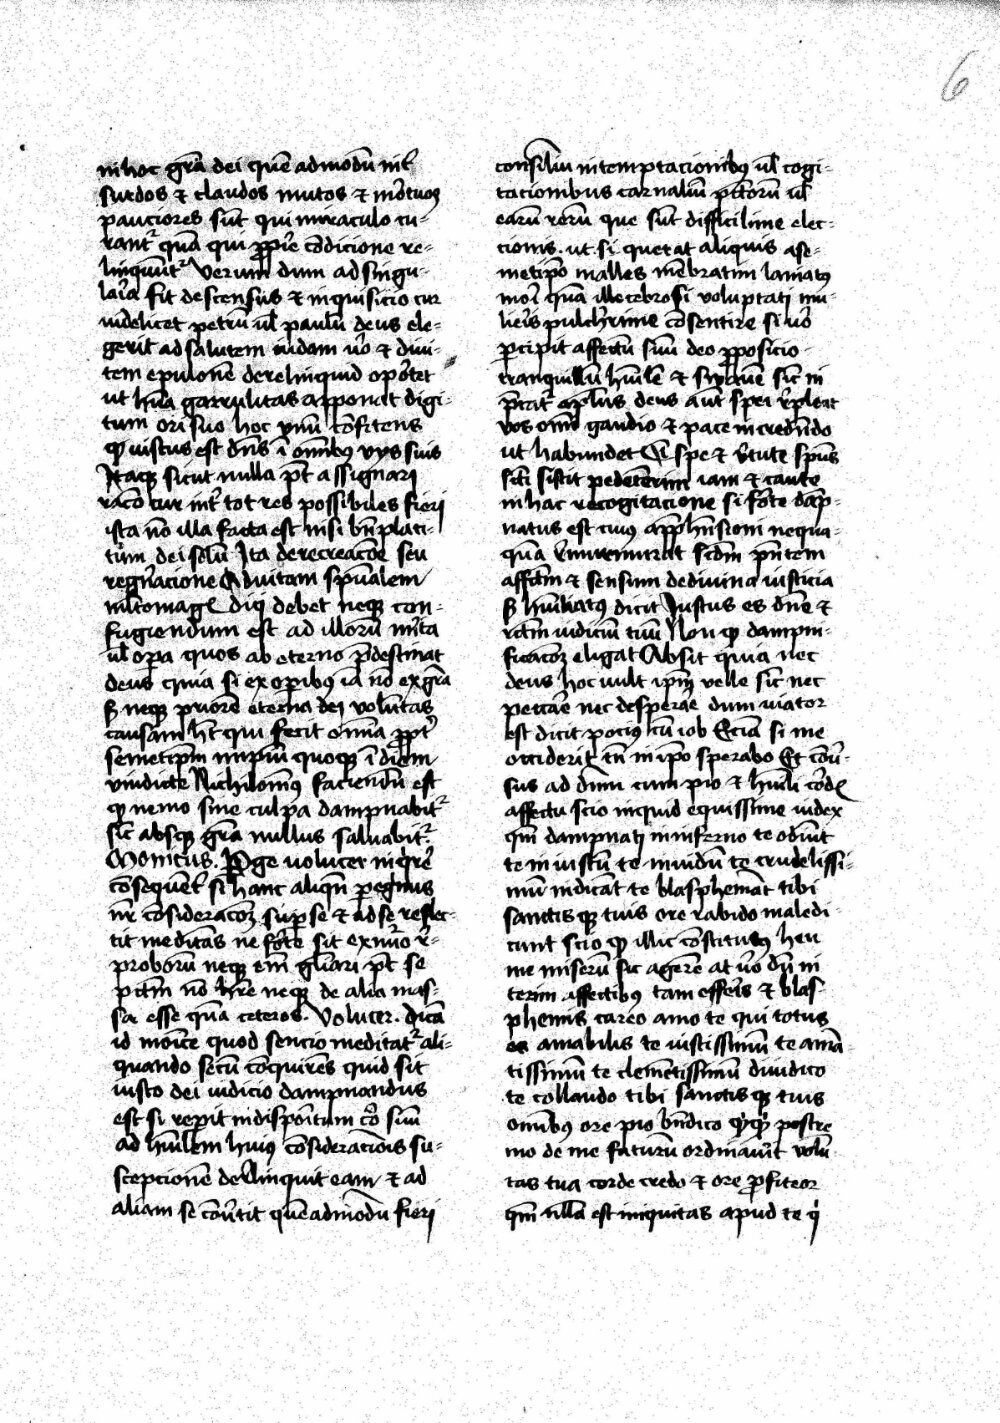 6
in hoc grā dei quēadmodū int̄
surdos et claudos mutos et mortuos
pauciores sūt qui miraculo cu-
rant᷑ quā qui ꝓpⁱe cōdicione re-
linquūt᷑ Verum dum ad singu-
laria fit descensus et inquisicio cur
videlicet petrū ul̄ paulū deus ele-
gerit ad salutem iudam ūo et diui-
tem epulonē derelinquid oportet
ut hūa garrulitas apponat digi-
tum ori suo hoc vnū cōfitens
qꝫ iustus est dn̄s ī omībꝫ vijs suis
Itaqꝫ sicut nulla pōt assignari
racō cur int̄ tot res possibiles fieri
ista nō illa facta est nisi bn̄placi-
tum dei solū Ita de recreacōe seu
regn̄acione ad vitam spūalem
multomagꝭ dici debet neqꝫ con-
fugiendum est ad illorū mīta
ul̄ opera quos ab eterno p̄destinat
deus quia si ex operibus iā nō ex grā
sꝫ neqꝫ priorē eterna dei volūtas
causam hꝫ qui fecit om̄ia ꝓpt̄
semetip̄m impiū quoqꝫ ī diem
vindicte Nichilominꝰ faciendū est
qꝫ nemo sine culpa dampnabit᷑
sic absqꝫ grā nullus saluabit᷑.
Monicus. Perge volucer inqⁱre
cōsequēt̄ si hanc aliqn̄ peregⁱnus
nr̄ cōsideracōꝫ sup se et ad se reflec-
tit meditās ne forte sit ex nuo re-
proborū neqꝫ em̄ gl̄iari pōt se
pctm̄ nō hr̄e neqꝫ de alia mas-
sa esse quā ceteros. Volucer. dicā
id monice quod sencio meditat᷑ ali-
quando secū cōquirēs quid sit
iusto dei iudicio dampnandus
est si repit indispoītum cor suū
ad hūilem huiꝰ cōsideracōis su-
scepcionē delinquit eam et ad
aliam se cōuertit quēadmodū fieri
consiliū in temptacionibꝫ ul̄ cogi-
tacionibus carnaliū pctōrū ul̄
earū rerū que sūt difficilime elec-
cionis. ut si querat aliquis a se-
metip̄o malles mēbratim laniatꝰ
mori quā illecebrosi voluptati mu-
lieris pulcherrime cōsentire si ūo
ꝑcipit affectū suū deo ꝓposicio
tranquillū hūilē et suauē sic in
p̄cat᷑ apl̄us deus aūt spei repleat
vos omī gaudio et pace in credēdo
ut habundet in spe et v̄tute spūs
sc̄i sistit pedetētim iam et caute
in hac recogitacione si forte dāp-
natus est cuiꝰ appͥhēsioni nequa-
quā inueniat scdm̄ pn̄tem
affctm̄ et sensum de diuina iusticia
sꝫ hūiliatꝰ dicit Iustus es dn̄e et
rctm̄ iudiciū tuū Non qꝫ dampni-
ficacōꝫ eligat Absit quia nec
deus hoc uult ip̄m velle sic nec
peccare nec desperare dum viator
est dicit pociꝰ cū iob Eciā si me
occiderit tn̄ in ip̄o sperabo Et cōu̾-
sus ad dn̄m cum pio et hūili cordꝭ
affectu scio inquid equissime iudex
qm̄ dampnati in inferno te odiūt
te iniustū te inuidū te crudelissi-
mū iudicāt te blasphemāt tibi
sanctis qꝫ tuis ore rabido maledi-
cunt scio qꝫ illic cōstitutꝰ heu
me miserū sic agerē at ūo dū in
terim affectibꝰ tam efferis et blas
phemis careo amo te qui totus
es amabilis te iustissimū te amā-
tissimū te clemētissimū diiudico
te collaudo tibi sanctis qꝫ tuis
omībꝰ ore pio bn̄dico qͥqͥd postre
mo de me faturū ordinauit volū
tas tua corde credo et ore ꝓfiteor
qm̄ nulla est iniquitas apud te qͥ